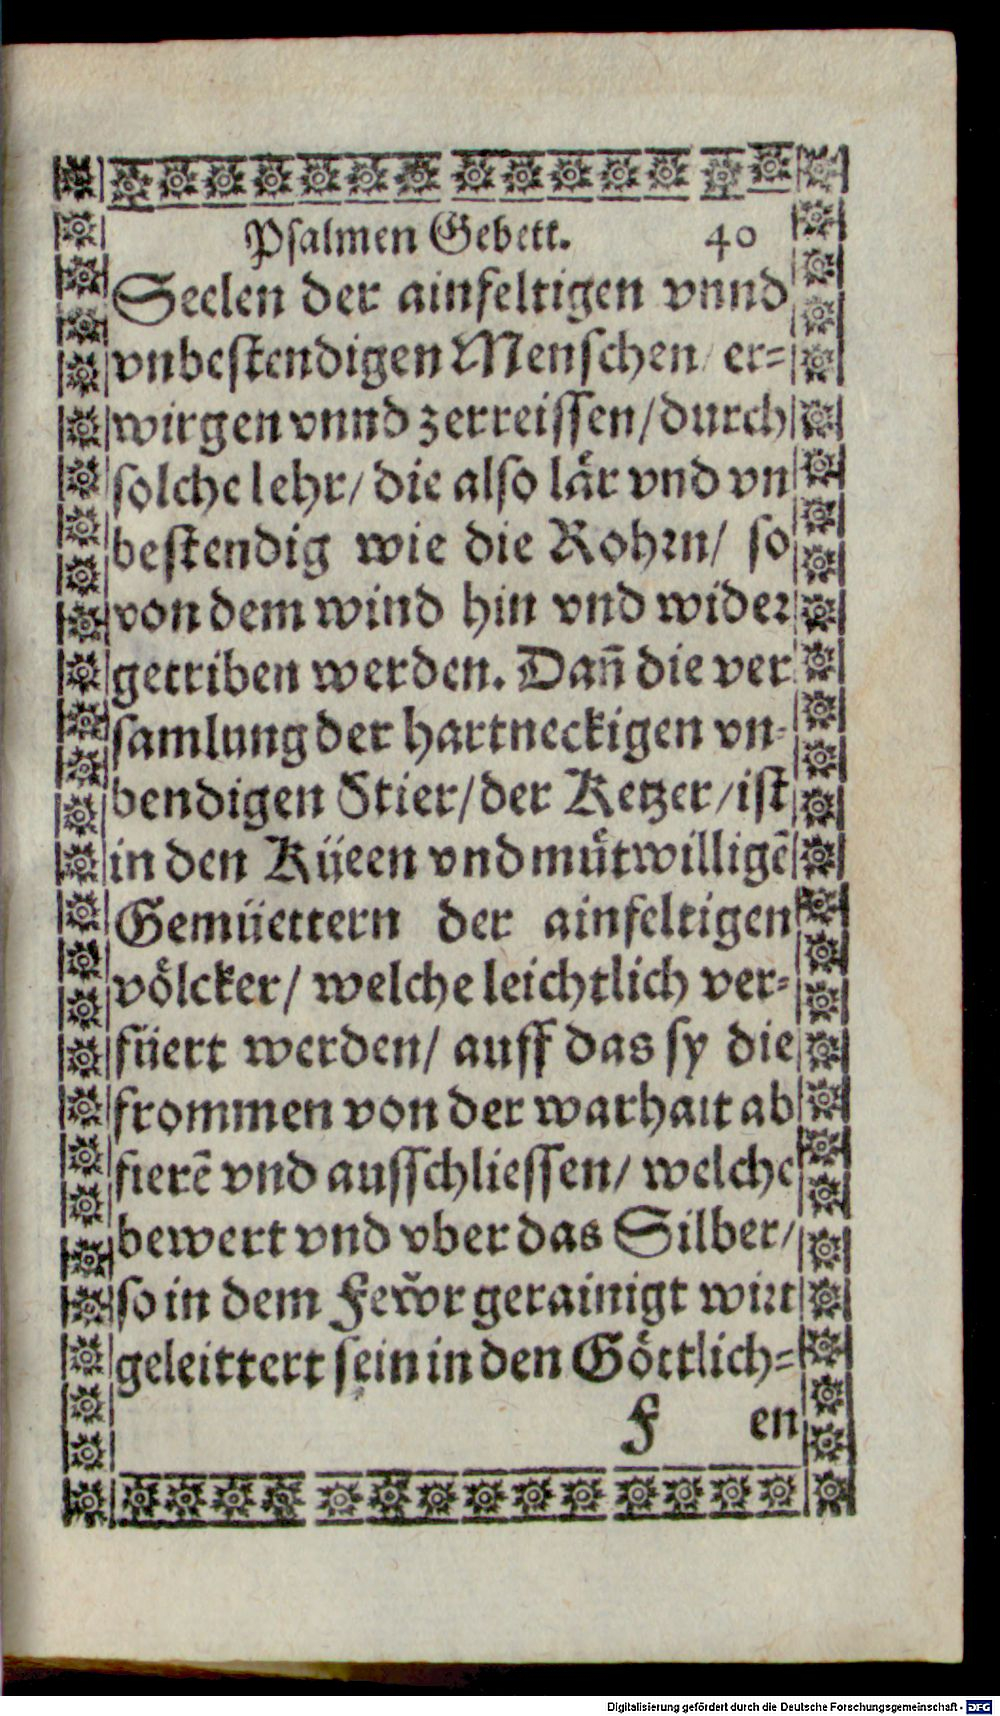 Psalmen Gebett. 40
Seelen der ainfeltigen vnnd
vnbestendigen Menschen/ er=
wirgen vnnd zerreissen/durch
solche lehr/ die also lår vnd vn
bestendig wie die Rohrn/ so
von dem wind hin vnd wider
getriben werden. Dañ die ver
samlung der hartneckigen vn=
bendigen Stier/der Ketzer/ist
in den Küeen vnd můtwilligẽ
Gemüettern der ainfeltigen
völcker/ welche leichtlich ver=
füert werden/ auff das sy die
frommen von der warhait ab
fierẽ vnd ausschliessen/ welche
bewert vnd vber das Silber/
so in dem Fewr gerainigt wirt
geleittert sein in den Göttlich=
F en
Digitalisierung gefördert durch die Deutsche Forschungsgemeinschaft - DFG